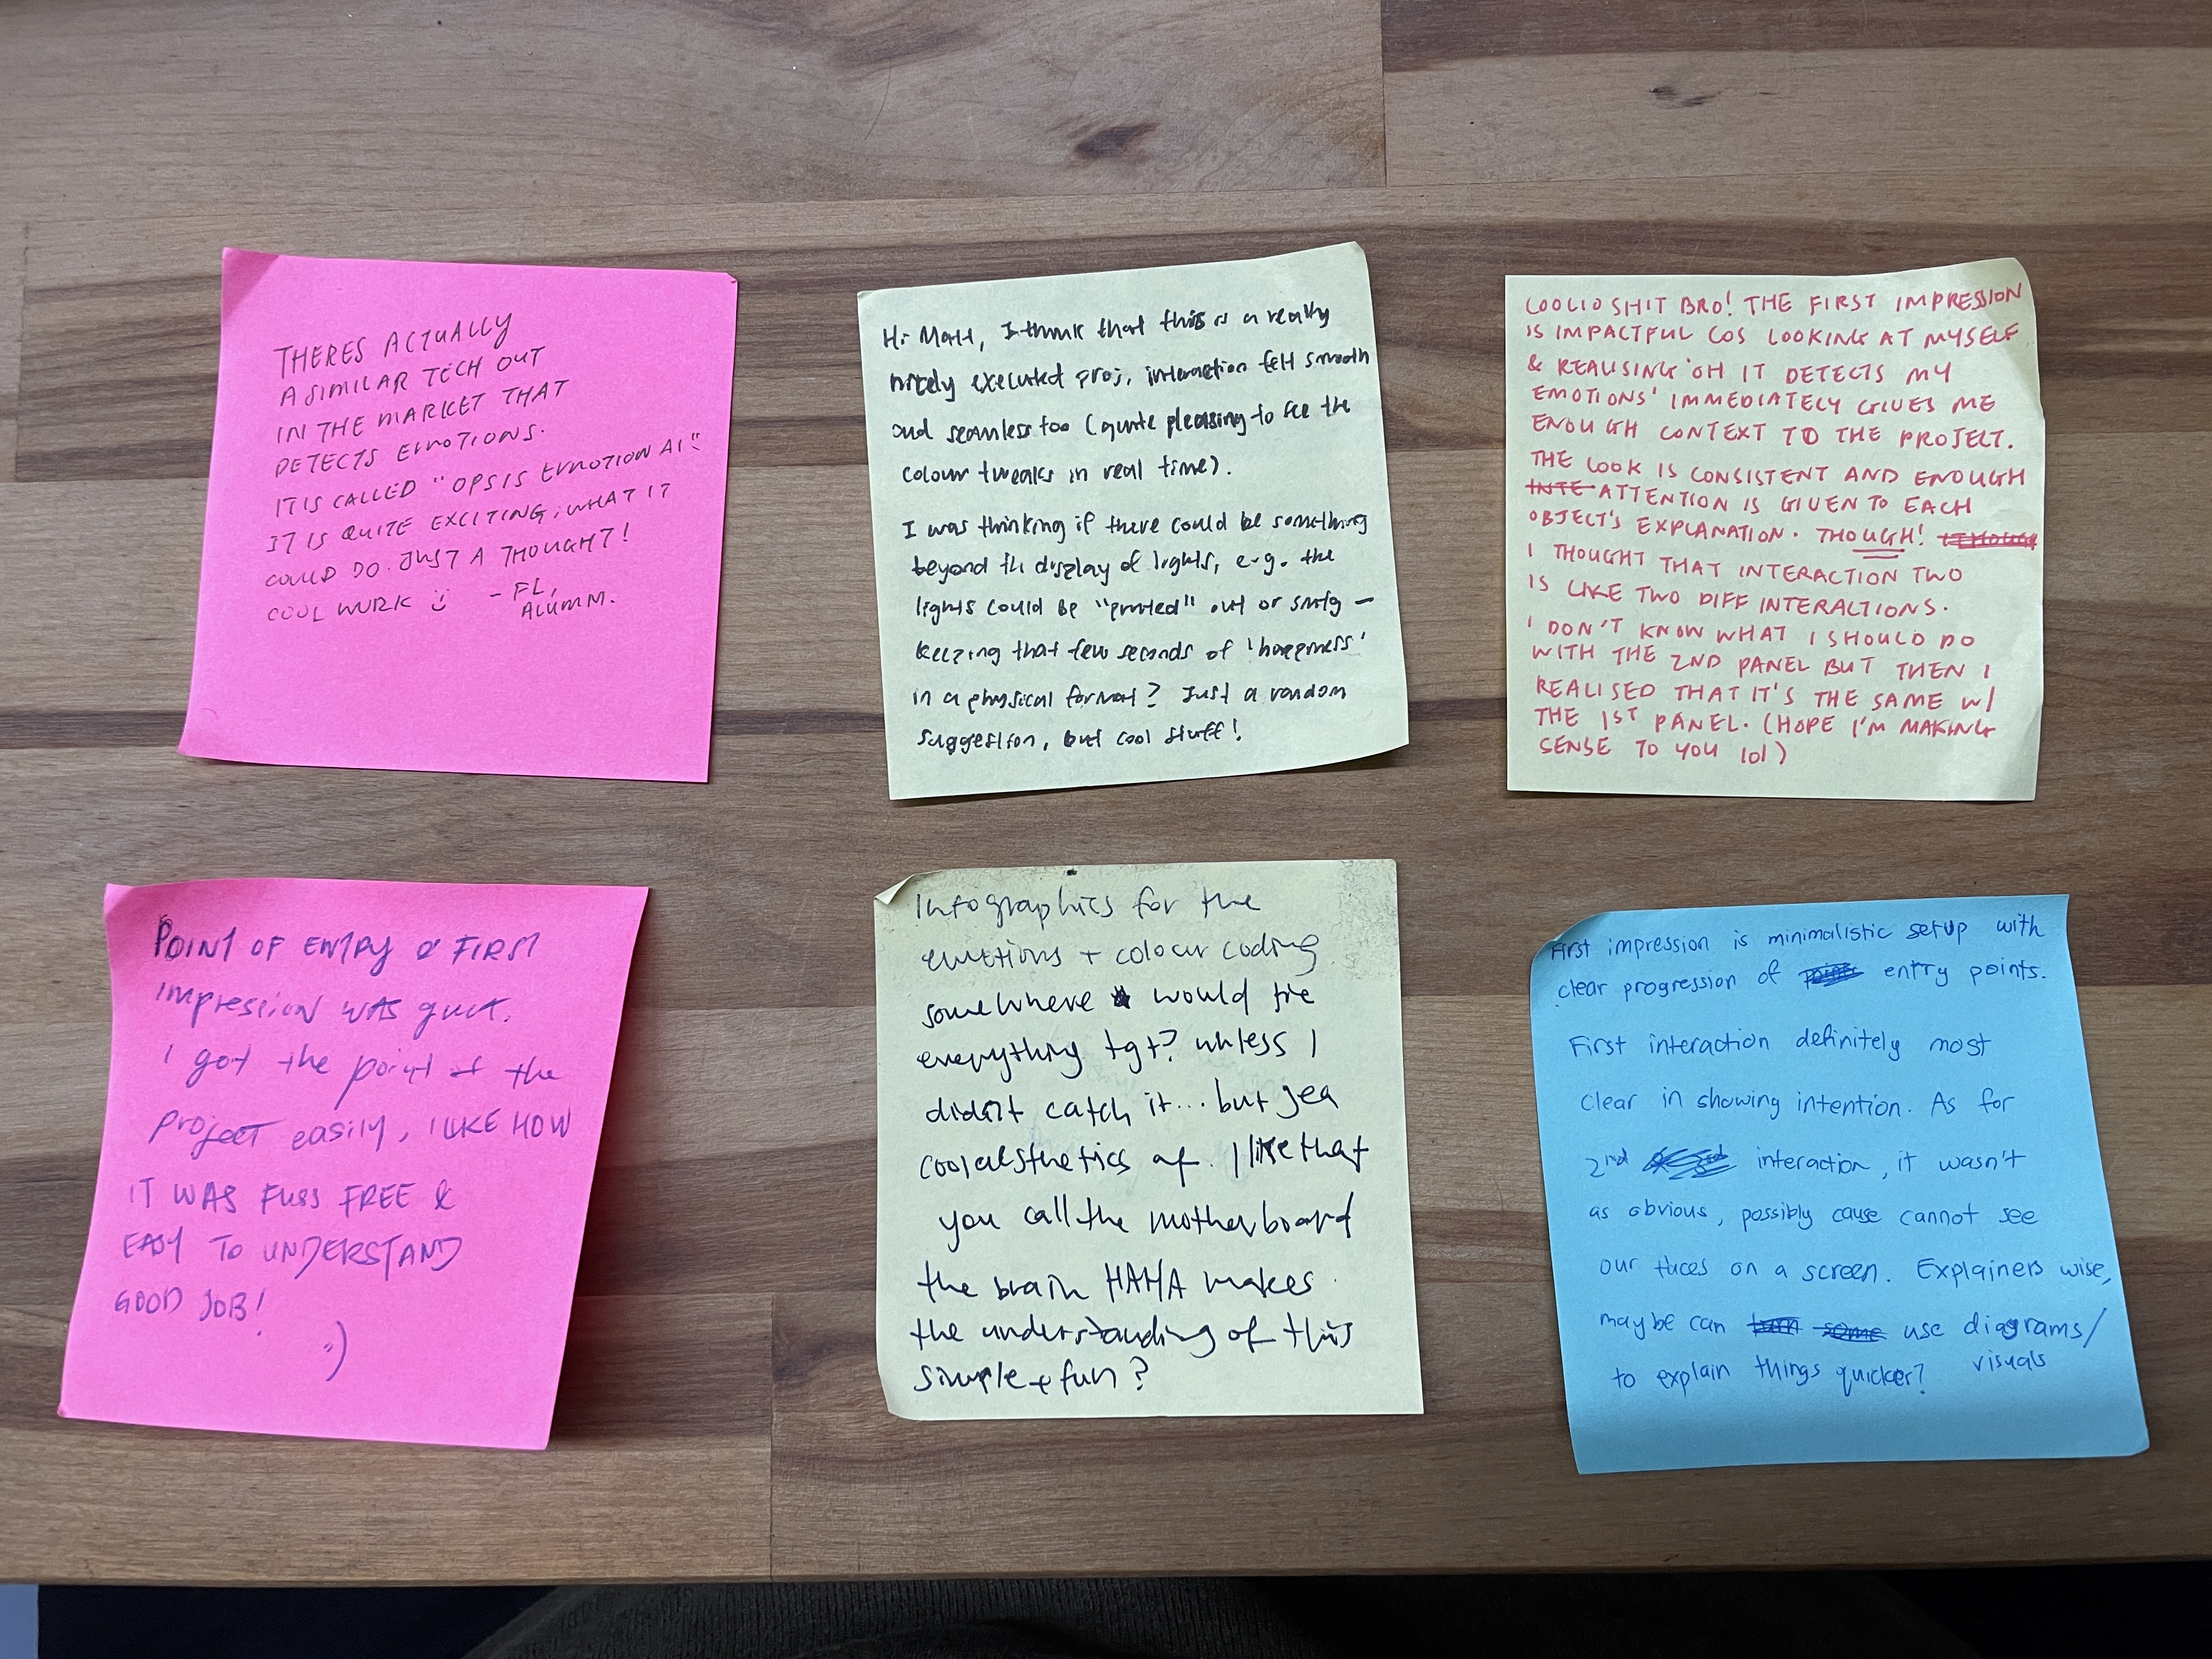 THERES ACTUALLY
A SIMILAR TECH OUT
IN THE MARKET THAT
DETECTS EMOTIONS.
IT IS CALLED "OPSIS EMOTION AI"
IT IS QUITE EXCITING, WHAT IT
COULD DO. JUST A THOUGHT!
COOL WORK :) - FL,
ALUMM.
Hi Matt, I think that this is a really
nicely executed proj, interaction felt smooth
and seamless too (quite pleasing to see the
colour tweaks in real time).
I was thinking if there could be something
beyond the display of lights, e.g. the
lights could be "printed" out or smtg -
keeping that few seconds of 'happiness'
in a physical format? Just a random
suggestion, but cool stuff!
COOLIO SHIT BRO! THE FIRST IMPRESSION
IS IMPACTFUL COS LOOKING AT MYSELF
& REALISING 'OH IT DETECTS MY
EMOTIONS' IMMEDIATELY GIVES ME
ENOUGH CONTEXT TO THE PROJECT.
THE LOOK IS CONSISTENT AND ENOUGH
INTE ATTENTION IS GIVEN TO EACH
OBJECT'S EXPLANATION. THOUGH!
I THOUGHT THAT INTERACTION TWO
IS LIKE TWO DIFF INTERACTIONS.
I DON'T KNOW WHAT I SHOULD DO
WITH THE 2ND PANEL BUT THEN I
REALISED THAT IT'S THE SAME W/
THE 1ST PANEL. (HOPE I'M MAKING
SENSE TO YOU lol)
POINT OF ENTRY & FIRST
impression was
I got the point of the
project easily, I LIKE HOW
IT WAS FUSS FREE &
EASY TO UNDERSTAND
GOOD JOB!
:)
Infographics for the
emotions + colour coding
somewhere would tie
everything tgt? unless I
didn't catch it... but yea
cool aesthetics af. I like that
you call the motherboard
the brain HAHA makes
the understanding of this
simple + fun?
First impression is minimalistic setup with
clear progression of entry points.
First interaction definitely most
clear in showing intention. As for
2nd interaction, it wasn't
as obvious, possibly cause cannot see
our faces on a screen. Explainers wise,
maybe can use diagrams/
visuals
to explain things quicker?